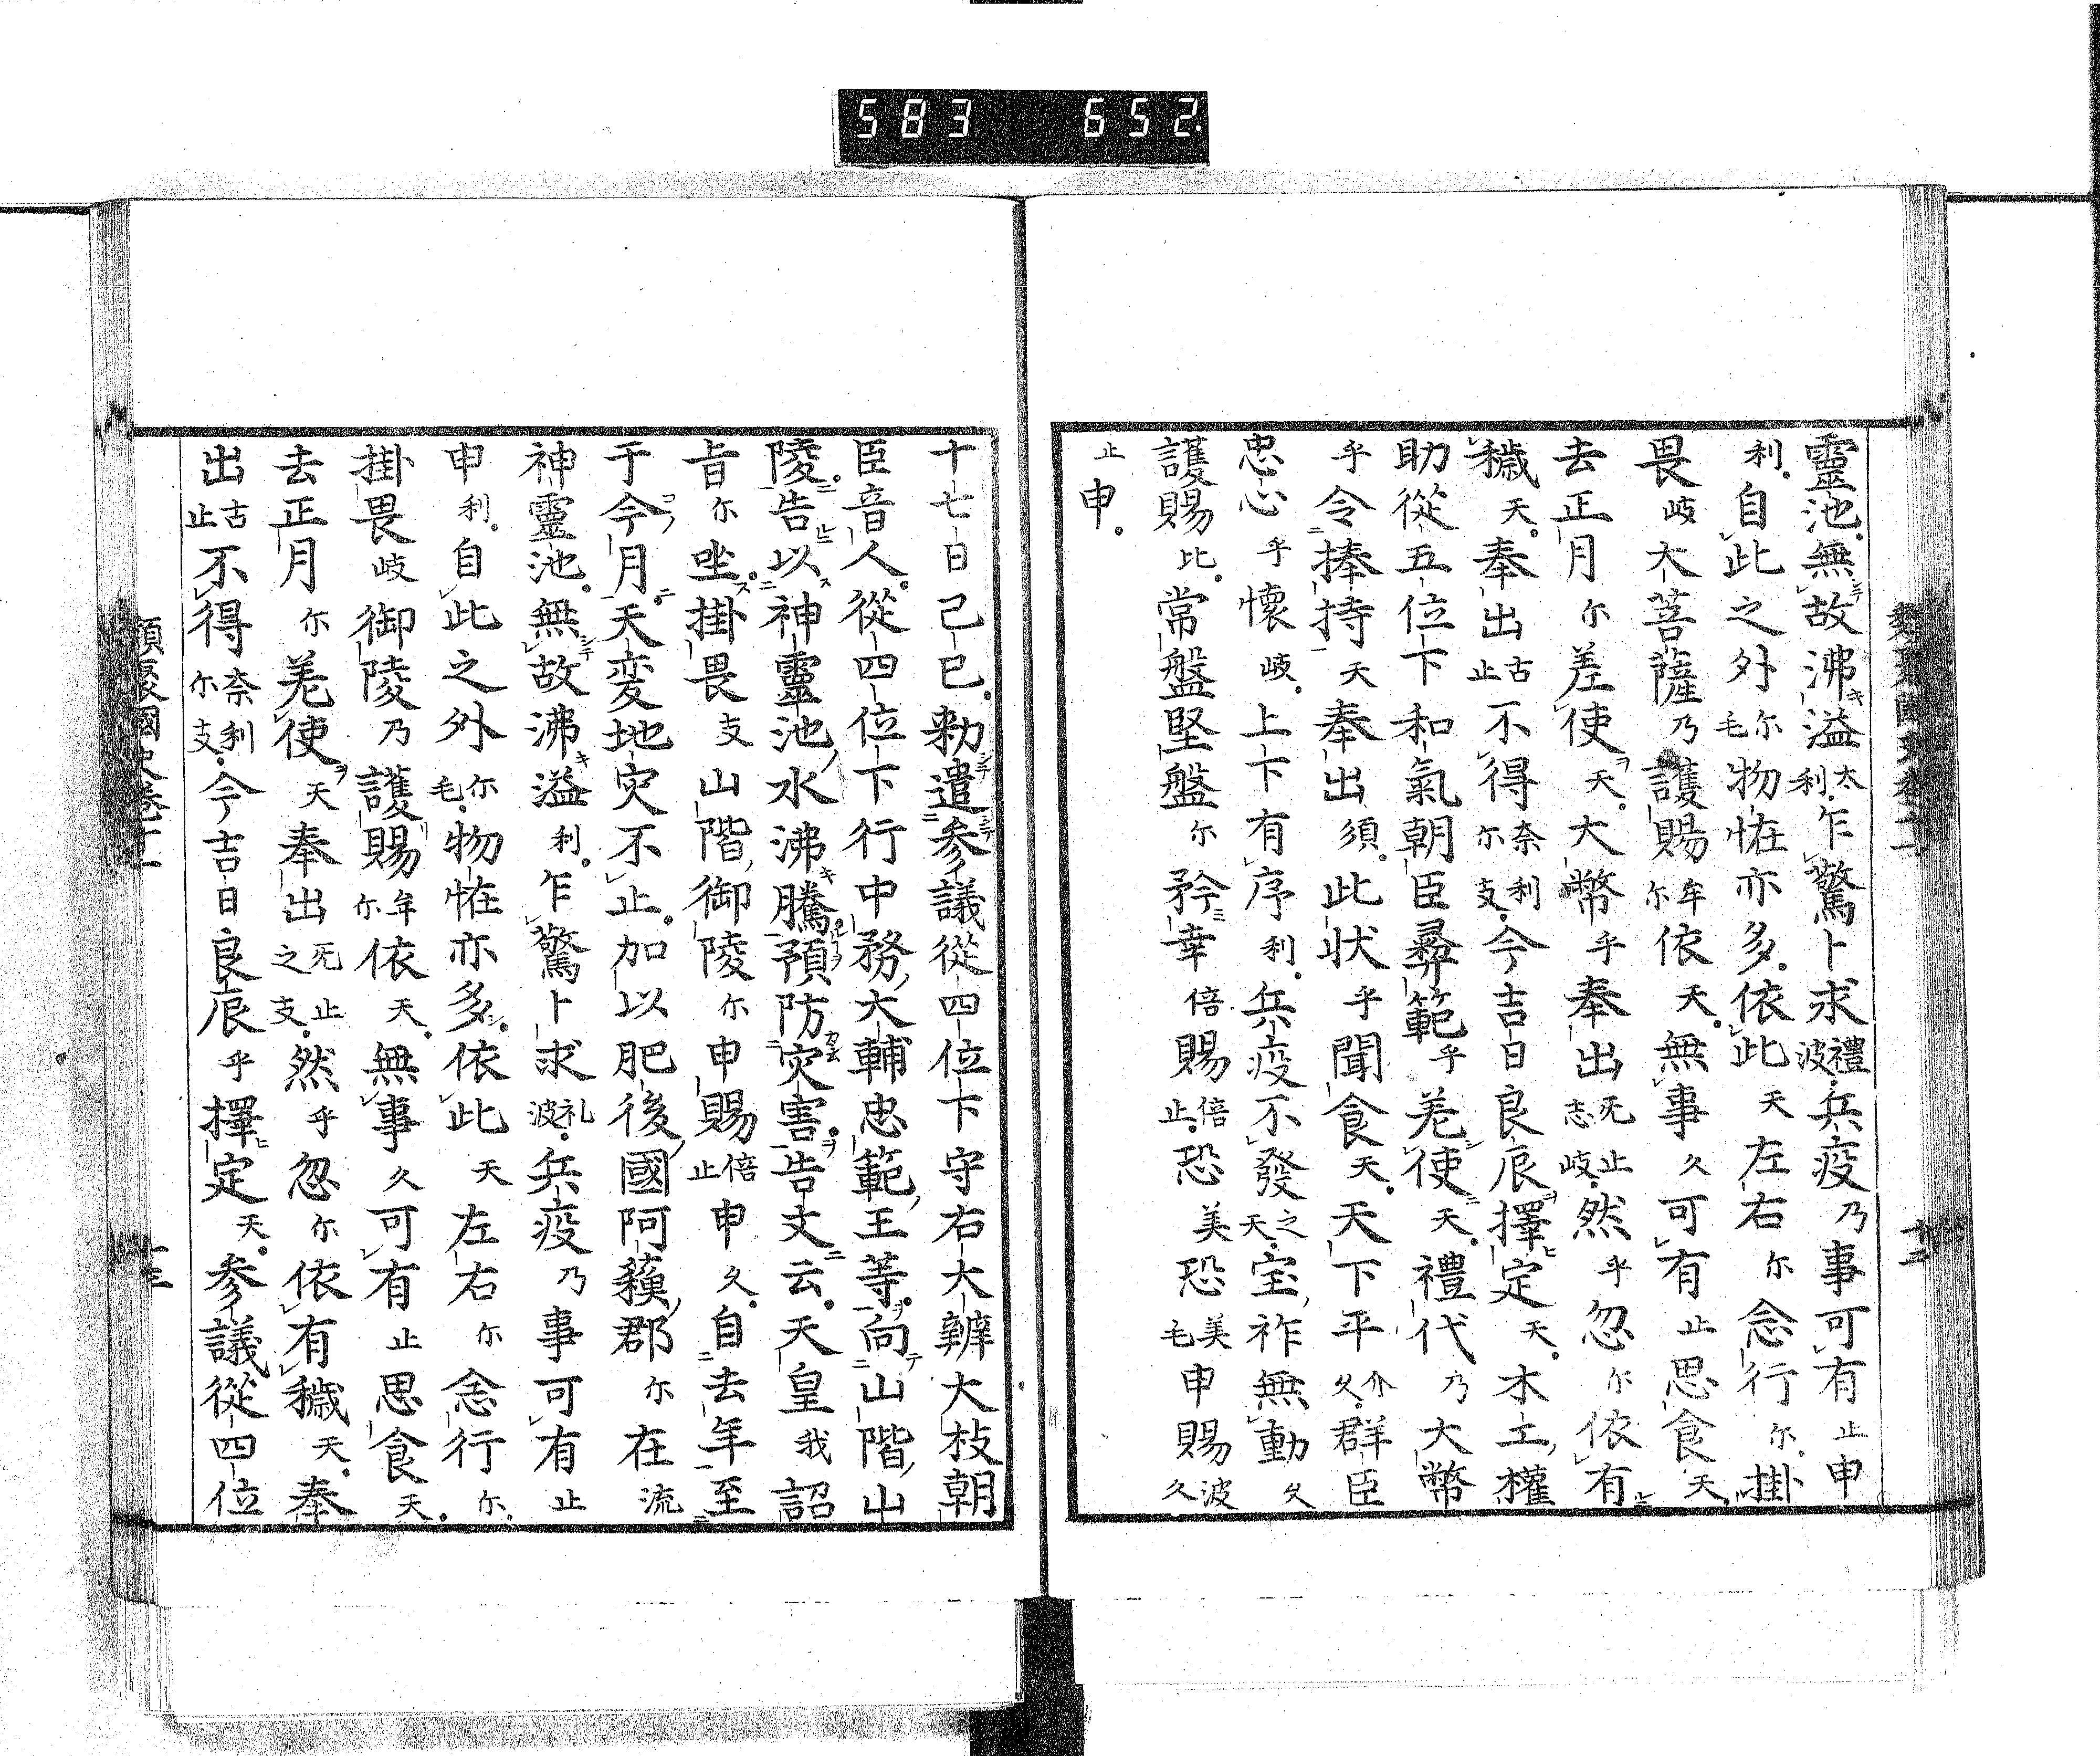 583 652
靈池無故沸溢太利乍驚卜求禮波兵疫乃事可有止申
利自此之外尓毛物恠亦多依此天左右尓念行尓掛
畏岐大菩薩乃護賜牟尓依天無事久可有止思食天
去正月尓差使天大幣乎奉出死志止岐然乎忽尓依有
穢天奉出古止不得奈尓利支今吉日良辰擇定天木工權
助從五位下和氣朝臣彛範乎差使天禮代乃大幣
乎令捧持天奉出須此状乎聞食天天下平介久群臣
忠心乎懷岐上下有序利兵疫不發之天宝祚無動久
護賜比常盤堅盤尓矜幸倍賜倍止恐美恐美毛申賜波久
止申
十七日己巳勅遣参議從四位下守右大辨大枝朝
臣音人從四位下行中務大輔忠範王等向山階山
陵告以神靈池水沸騰預防灾害告文云天皇我詔
旨尓坐掛畏支山階御陵尓申賜倍止申久自去年至
于今月天変地灾不止加以肥後國阿蘓郡尓在流
神靈池無故沸溢利乍驚卜求礼波兵疫乃事可有止
申利自此之外尓毛物恠亦多依此天左右尓念行尓
掛畏岐御陵乃護賜牟尓依天無事久可有止思食天
去正月尓差使天奉出死之止支然乎忽尓依有穢天奉
出古止不得奈尓利支今吉日良辰乎擇定天参議從四位
類聚國史卷十一
十三